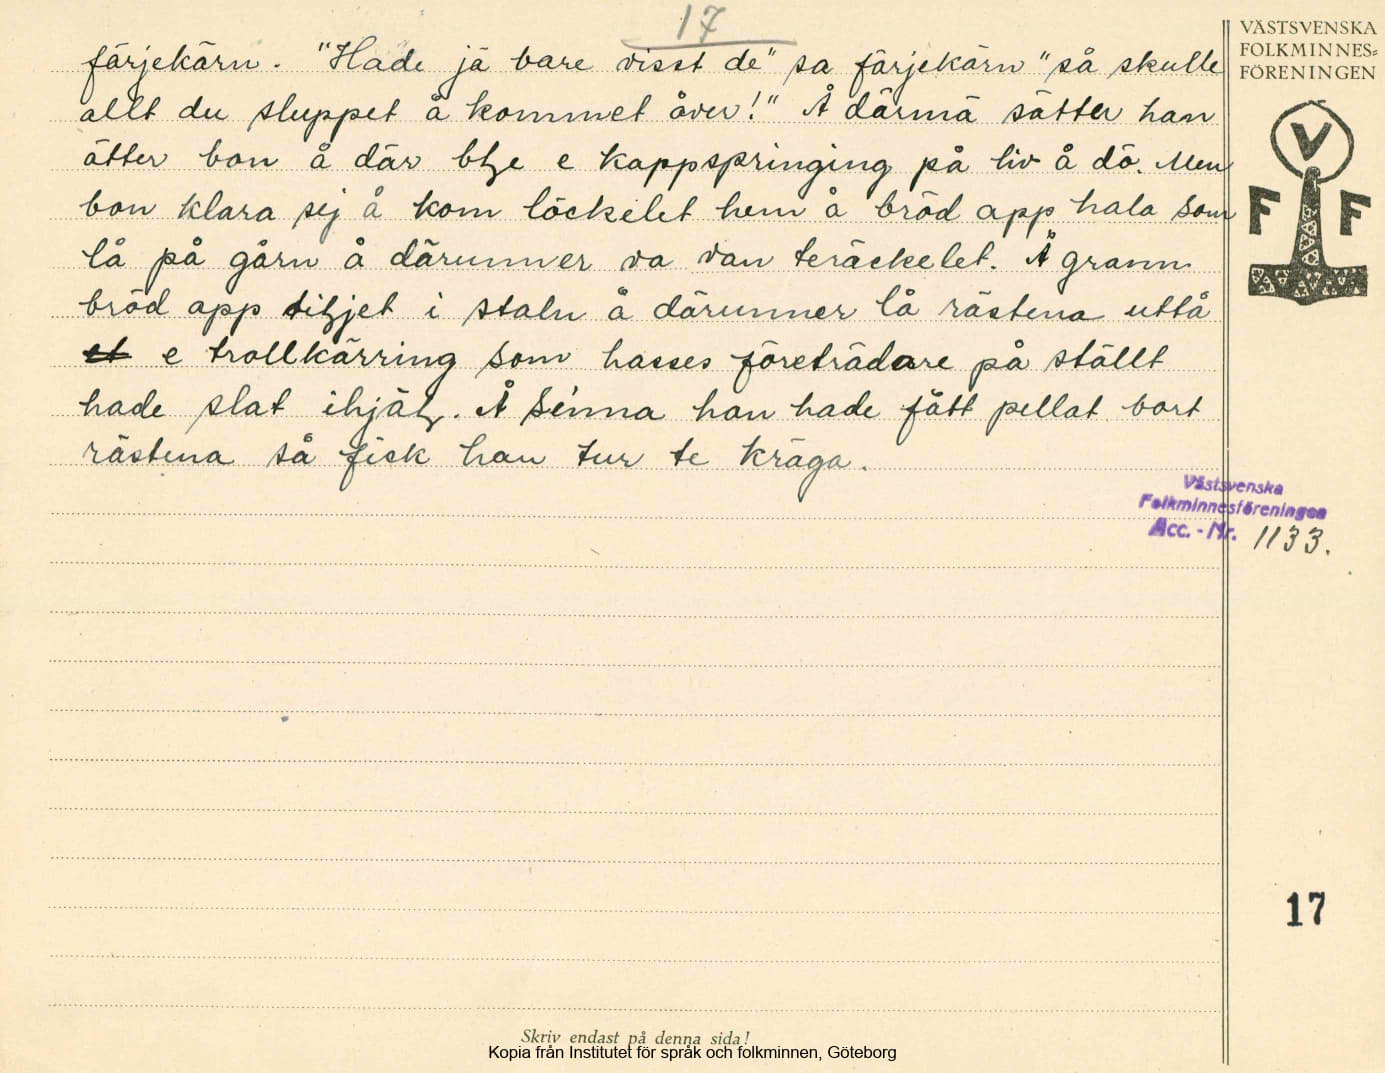 17
VÄSTSVENSKA
FOLKMINNES-
FÖRENINGEN
färjekärn. "Hade jä bare visst de" sa färjekärn "så skulle
allt du sluppet å kommet över!" Å därmä sätter han
ätter bon å där ble e kappspringing på liv å dö. Men
bon klara sej å kom löckelet hem å bröd app hala som
lå på gårn å därunner va van teräckelet. Å grann
bröd app tiljet i staln å därunner lå rästena uttå
et e trollkärring som hasses företrädare på ställt
hade slat ihjäl. Å sénna han hade fått pellat bort
rästena så fick han tur te kräga.
V
F F
Västsvenska
Folkminnesföreningen
Acc. - Nr. 1133.
17
Skriv endast på denna sida!
Kopia från Institutet för språk och folkminnen, Göteborg